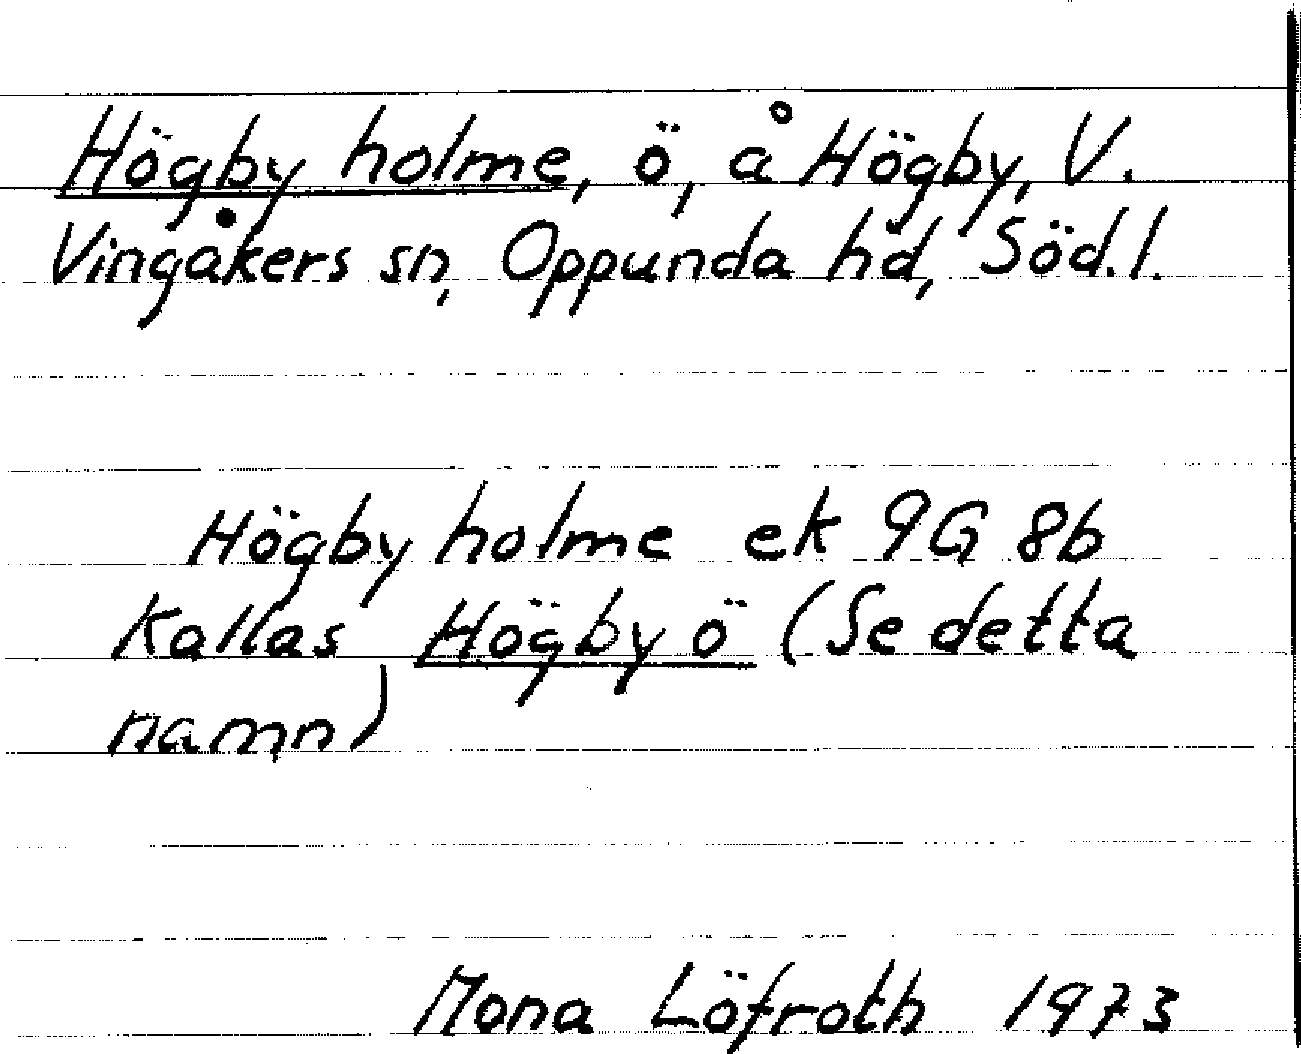 Högby holme, ö, å Högby, V.
Vingåkers sn, Oppunda hd, Söd.l.
Högby holme ek 9G 8b
Kallas Högby ö (Se detta
namn)
Mona Löfroth 1973